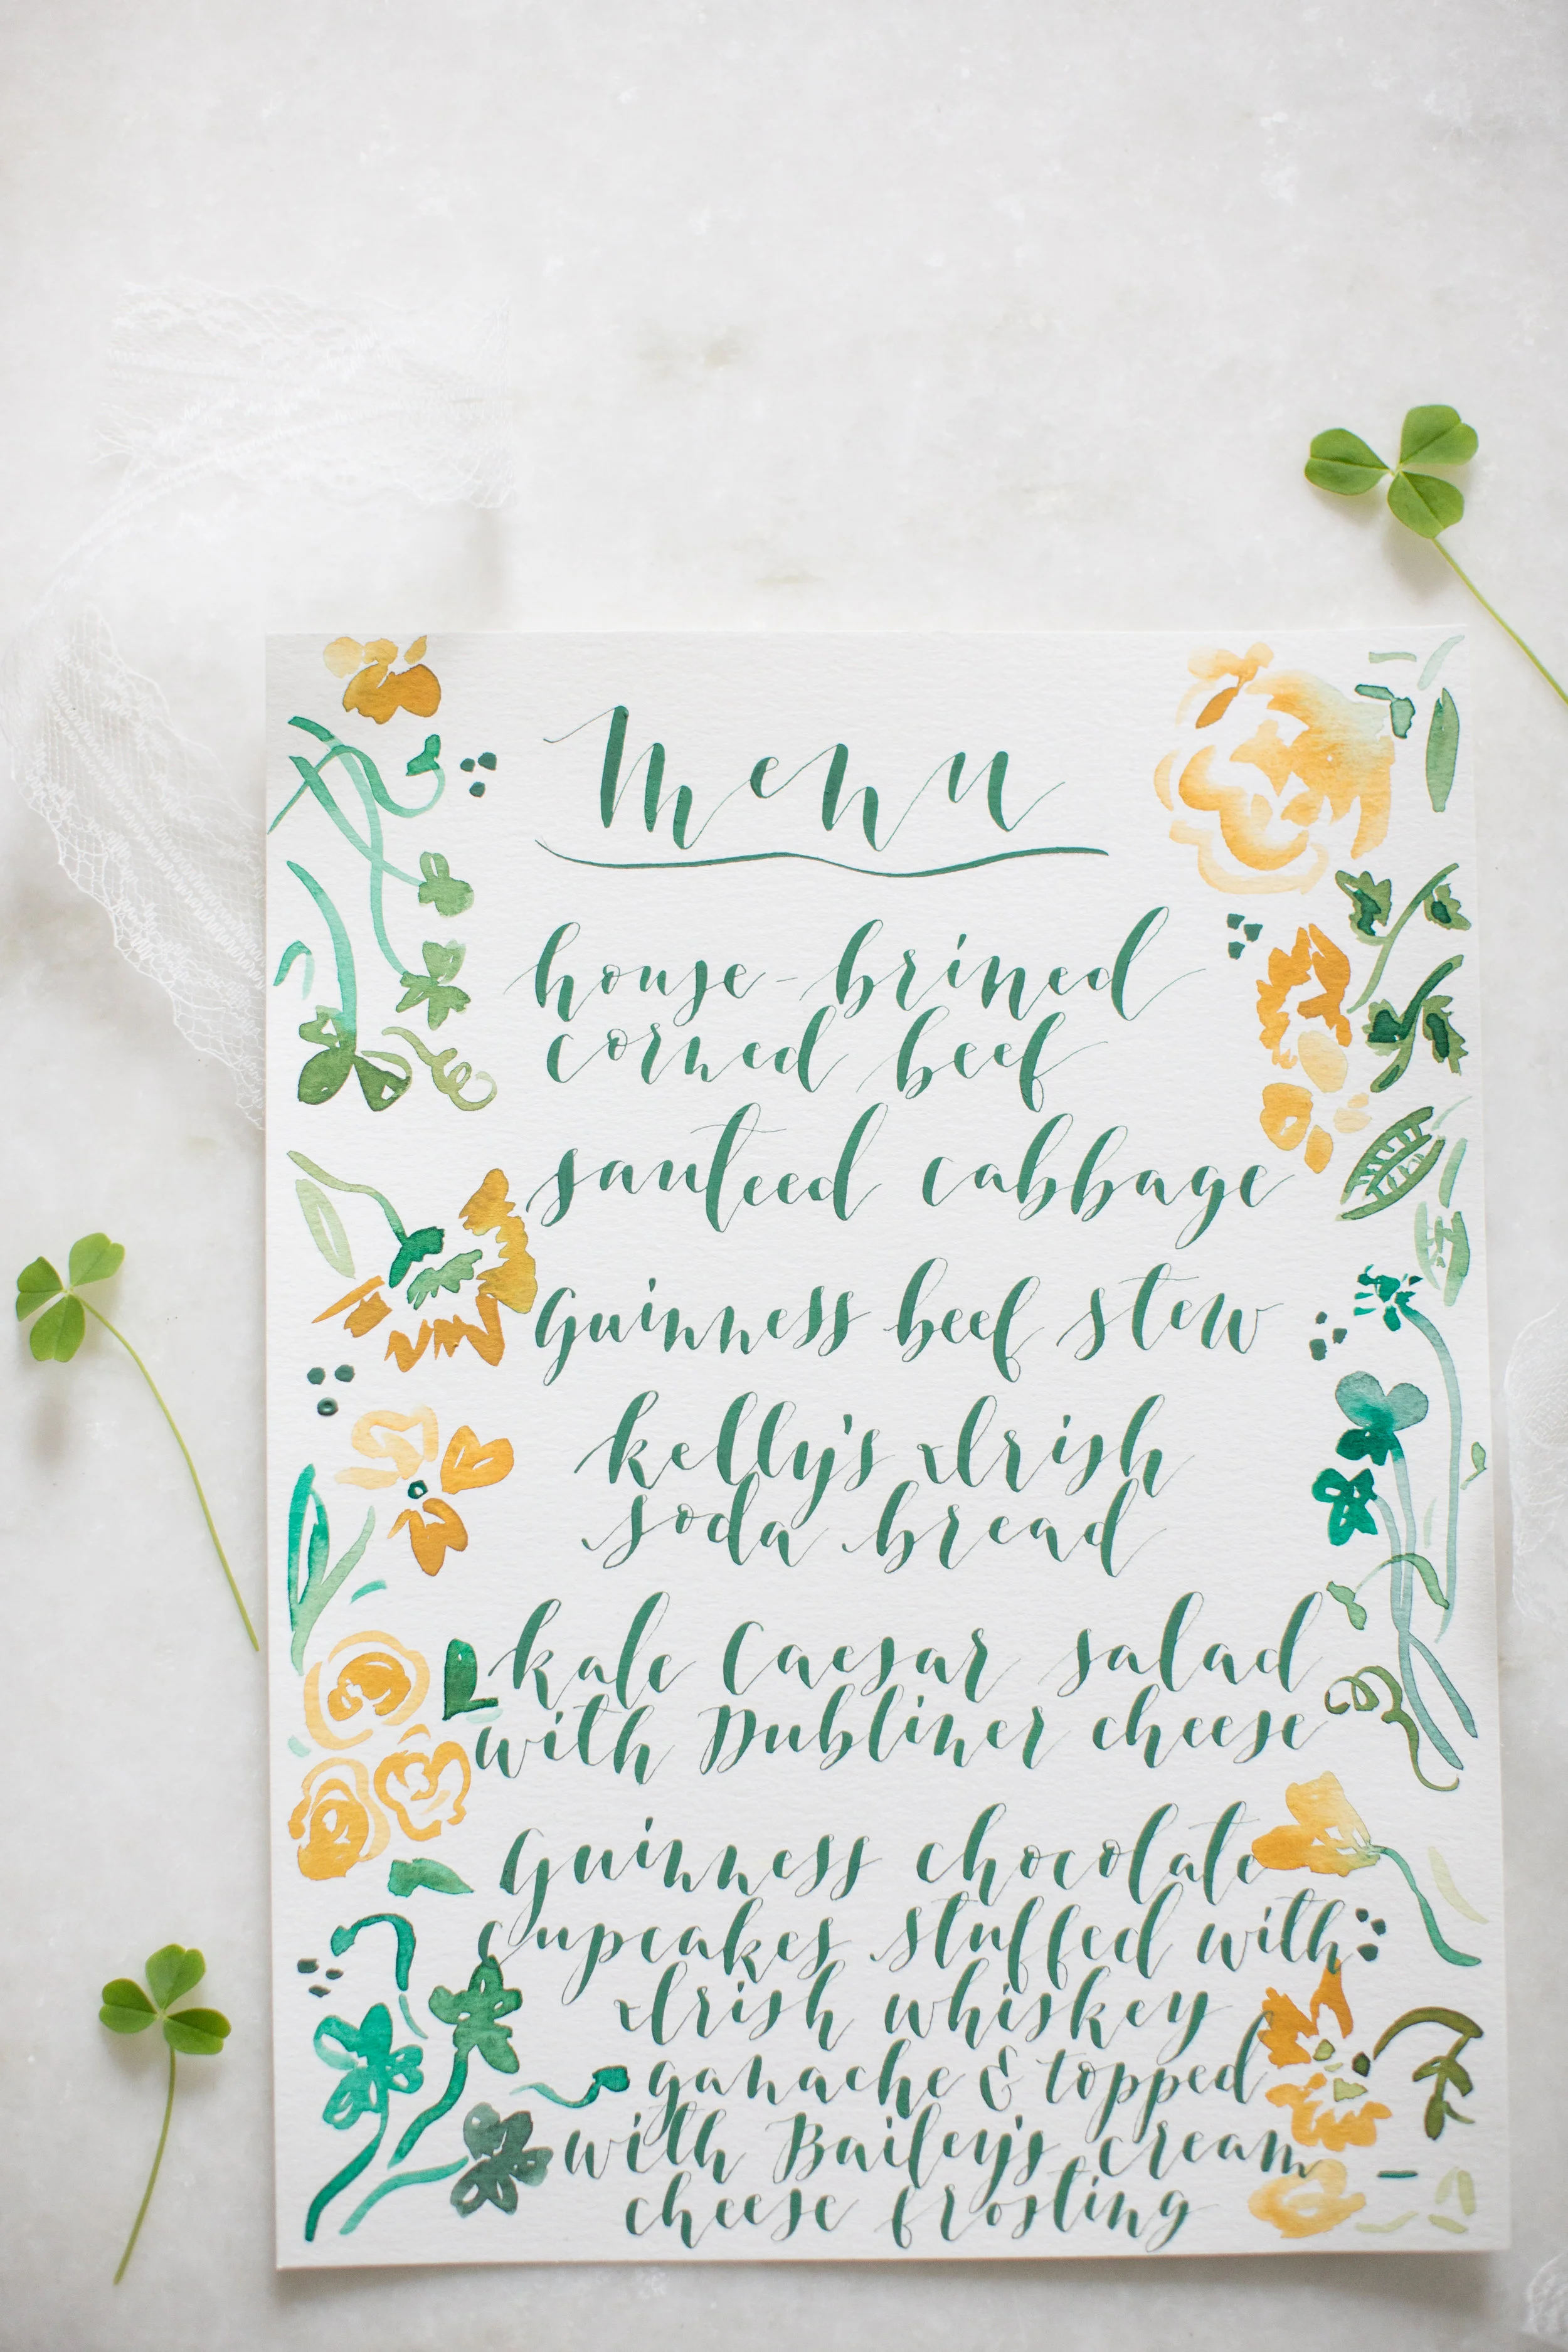 Menu
house-brined
corned beef
sauteed cabbage
Guinness beef stew
kelly's Irish
soda bread
kale Caesar salad
with Dubliner cheese
Guinness chocolate
cupcakes stuffed with
Irish whiskey
ganache & topped
with Bailey's cream
cheese frosting